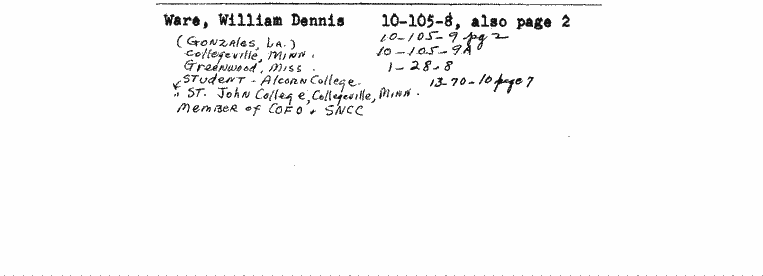 Ware, William Dennis 10-105-8, also page 2
(GONZALES, LA.) 10-105-9 pg 2
Collegeville, MINN. 10-105-9A
Greenwood, Miss. 1-28-8
STUDENT - Alcorn College 13-70-10 page 7
" ST. John College, Collegeville, MINN.
MEMBER of COFO + SNCC